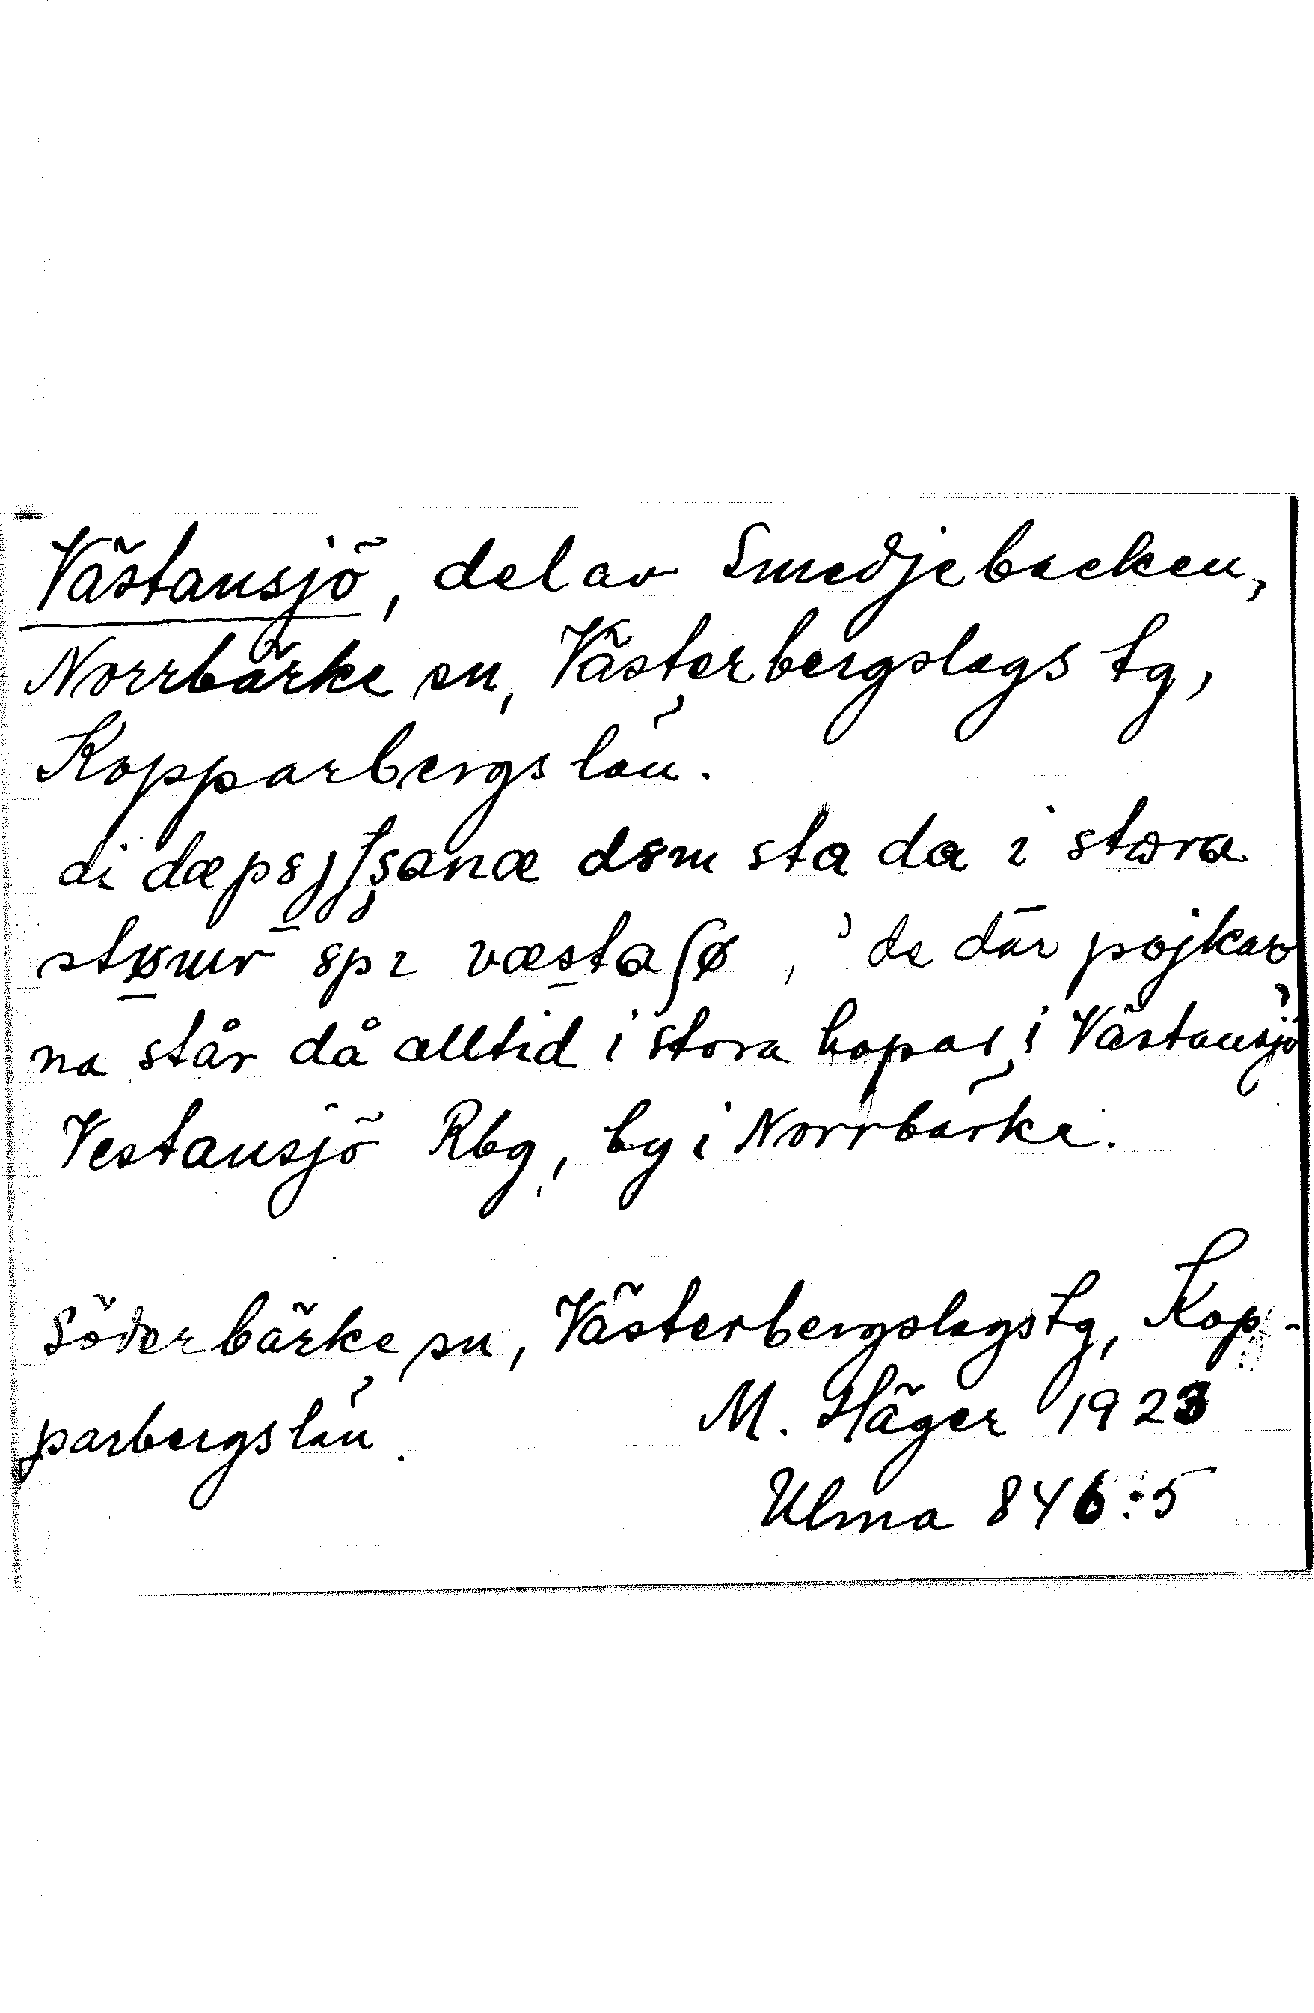 Västansjö, del av Smedjebacken,
Norrbärke sn, Västerbergslags tg,
Kopparbergs län.
di sta da i
væstaʃø, de där pojkar
na står då alltid i stora hopar i Västansjö
Vestansjö Rbg, by i Norrbärke.
Söderbärke sn, Västerbergslags tg, Kop-
parbergs län.
M. Häger 1923
Ulma 846:5